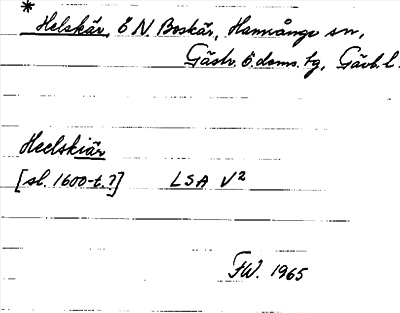 * Helskär, Ö N. Boskär, Hamrånge sn,
Gästr. Ö doms. tg, Gävl. l.
Heelskiär
[sl. 1600-t.?] LSA V²
FW. 1965